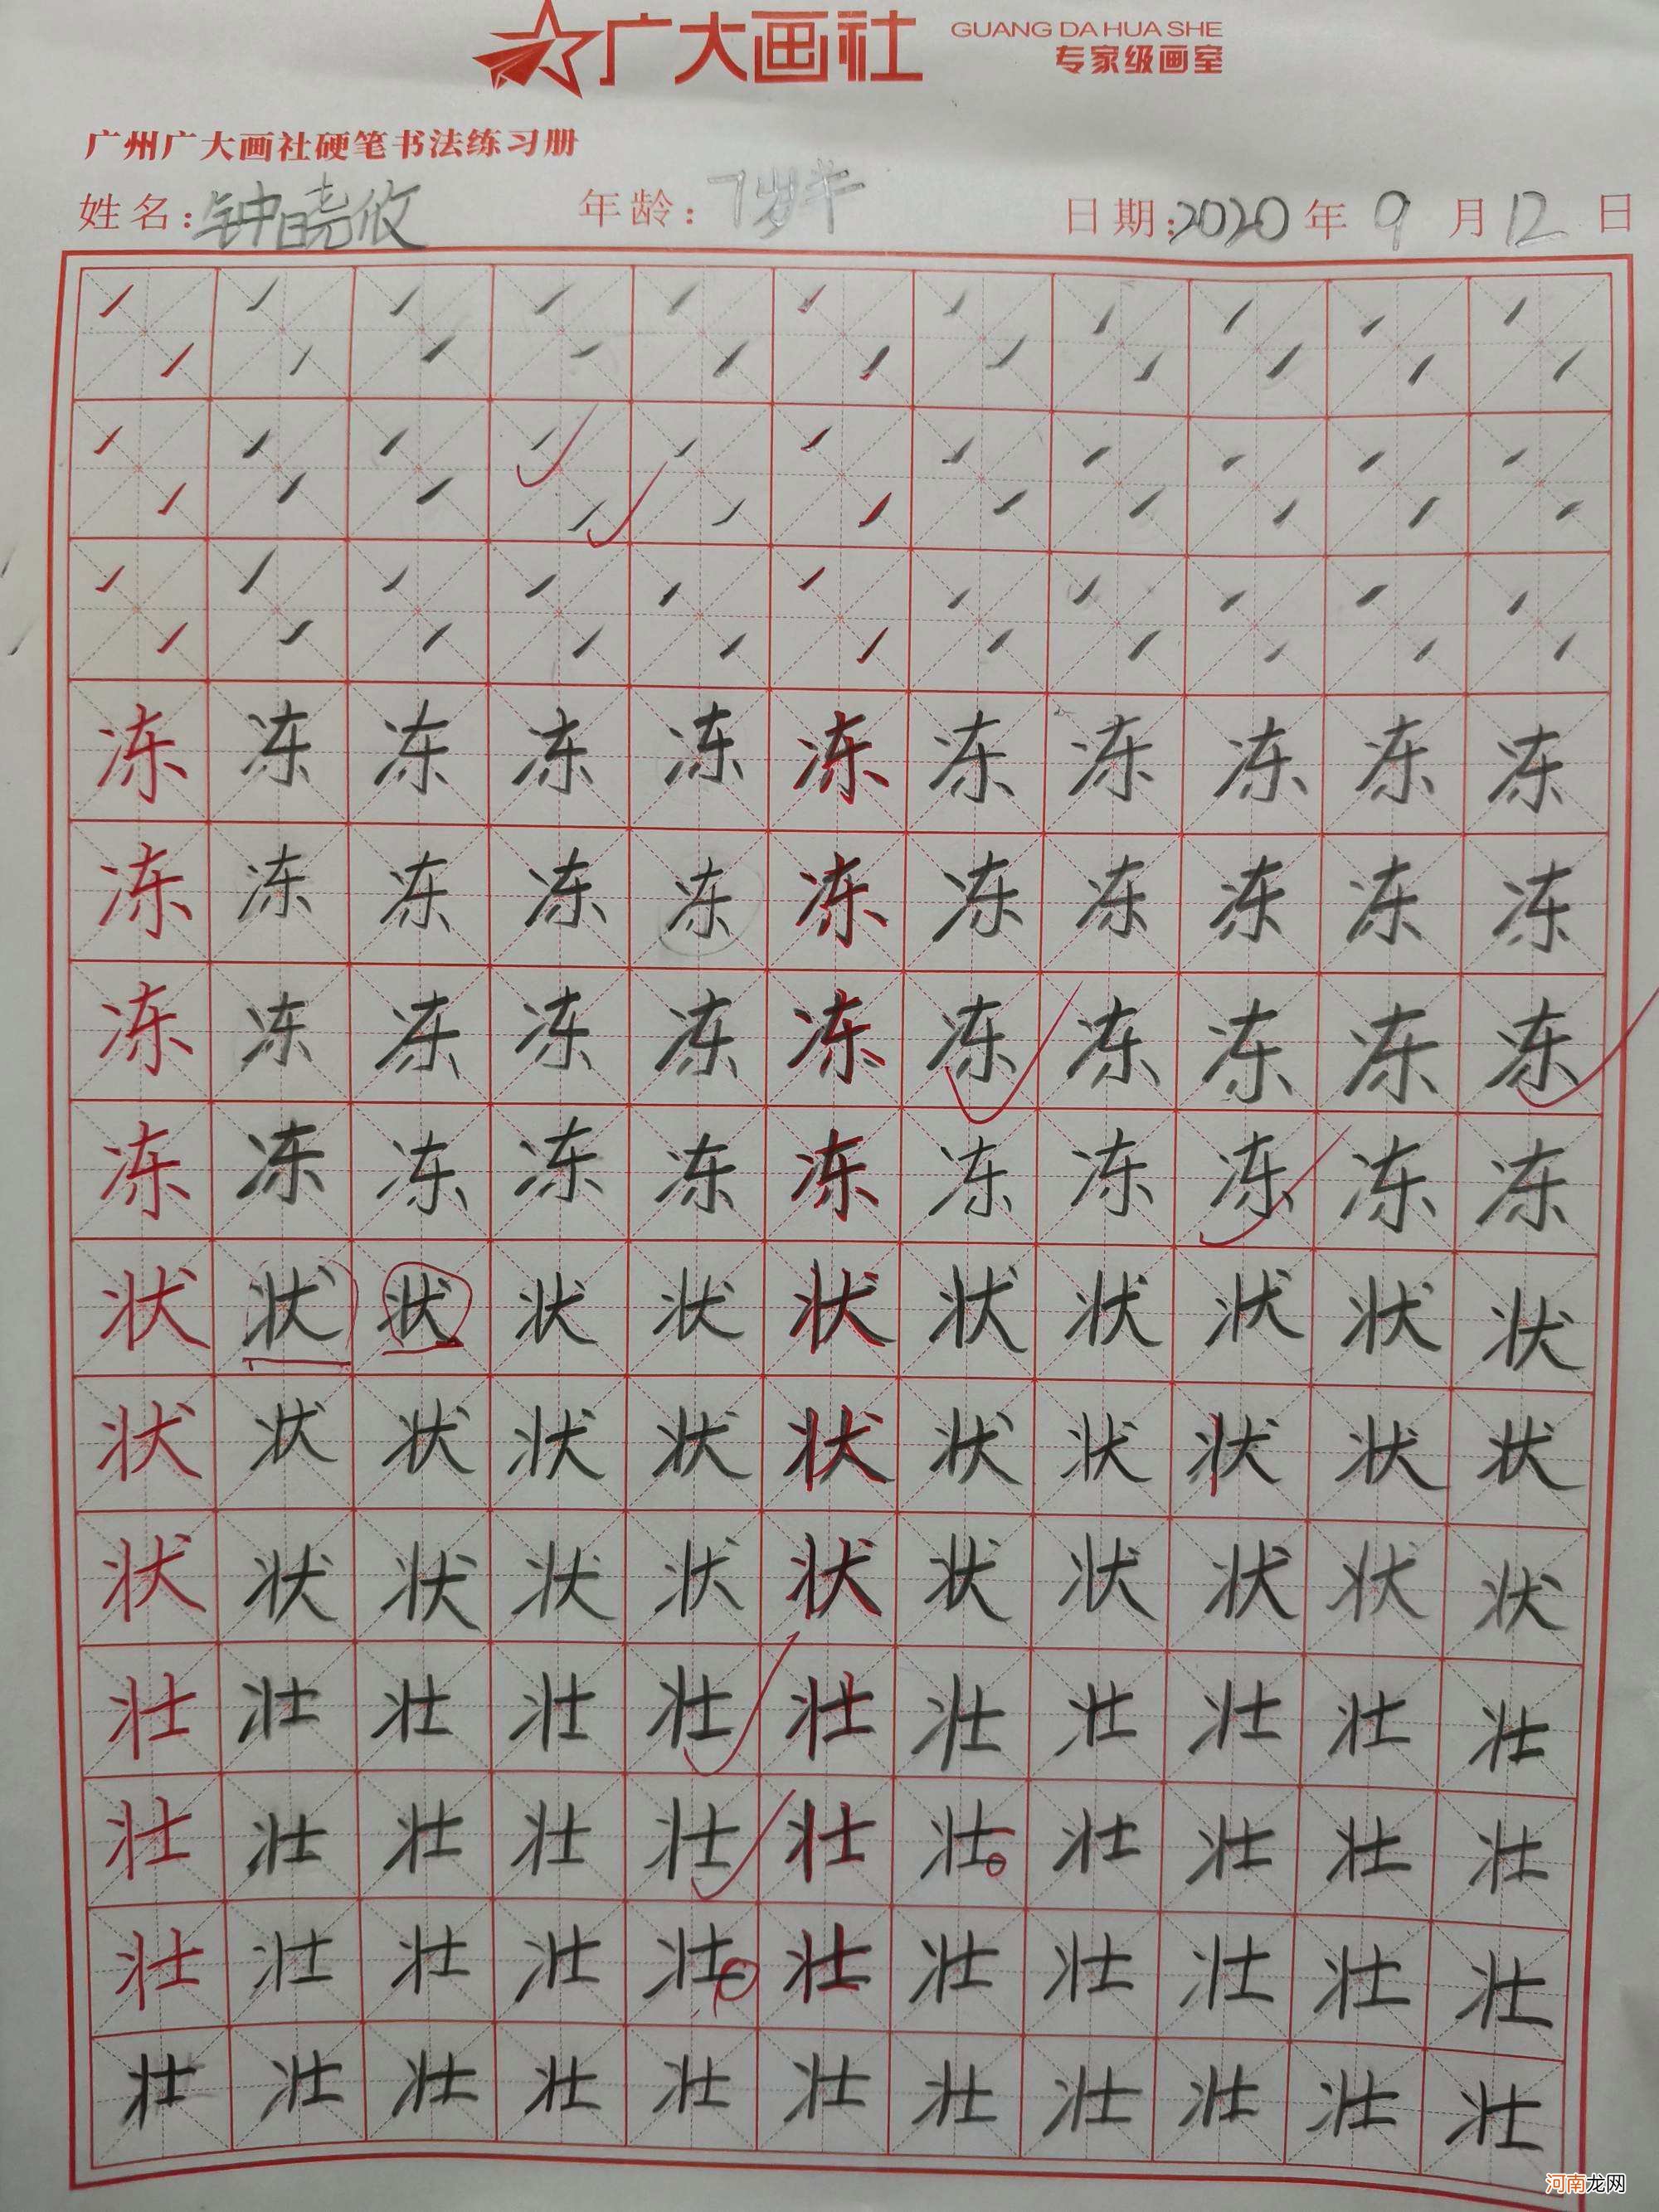 广大画社 GUANG DA HUA SHE
专家级画室
广州广大画社硬笔书法练习册
姓名:钟晓攸 年龄:7岁半 日期:2020年9月12日
冻冻冻冻冻冻冻冻冻冻冻
冻冻冻冻冻冻冻冻冻冻冻
冻冻冻冻冻冻冻冻冻冻冻
冻冻冻冻冻冻冻冻冻冻冻
状状状状状状状状状状状
状状状状状状状状状状状
状状状状状状状状状状状
壮壮壮壮壮壮壮壮壮壮壮
壮壮壮壮壮壮壮壮壮壮壮
壮壮壮壮壮壮壮壮壮壮壮
壮壮壮壮壮壮壮壮壮壮壮
河南龙网